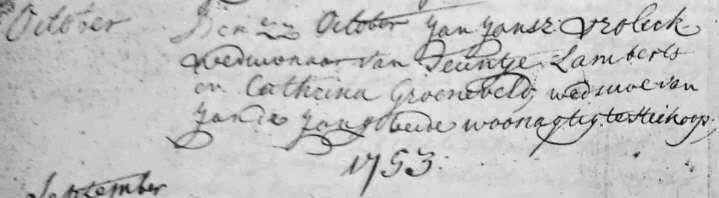 October Den 22 October Jan Jansz: Vroleck
Weduwnaar van Teuntje Lamberts
en Cathrina Groeneveld weduwe van
Jan de Jong beide woonagtig te Heikoop,
1753.
September